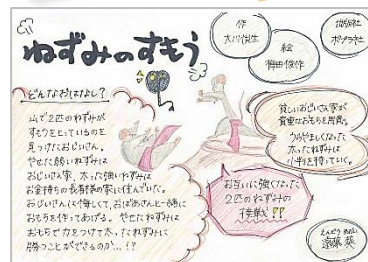 ねずみのすもう
作
大川悦生
絵
梅田俊作
出版社
ポプラ社
どんなおはなし?
山で2匹のねずみが
すもうをとっているのを
見つけたおじいさん。
やせた弱いねずみは
おじいさん家、太った強いねずみは
お金持ちの長者様の家に住んでいた。
おじいさんは悔しくて、おばあさんと一緒に
おもちを作ってあげる。やせたねずみは
おもちで力をつけて太ったねずみに
勝つことができるのか…!?
貧しいおじいさん家が
貴重なおもちを用意。
うらやましくなった
太ったねずみは
小判を持っていく。
お互いに強くなった
2匹のねずみの
接戦!!
遠藤 葵